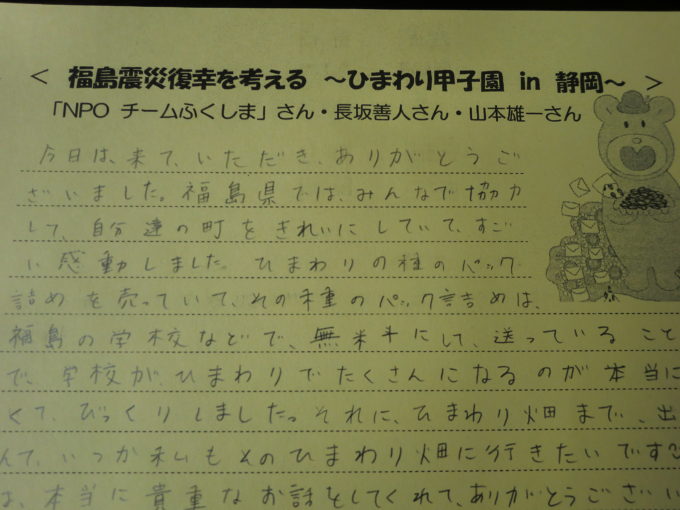 < 福島震災復幸を考える ～ひまわり甲子園 in 静岡～ >
「NPO チームふくしま」さん・長坂善人さん・山本雄一さん
今日は、来て、いただき、ありがとうご
ざいました。福島県では、みんなで協力
して、自分達の町をきれいにしていて、すご
い感動しました。ひまわりの種のパック
詰めを売っていて、その種のパック詰めは、
福島の学校などで、無料にして、送っていること
で、学校が、ひまわりでたくさんになるのが本当に
くて、びっくりしましたっそれに、ひまわり畑まで、出
んて、いつか私もそのひまわり畑に行きたいです
は、本当に貴重なお話をしてくれて、ありがとうござい